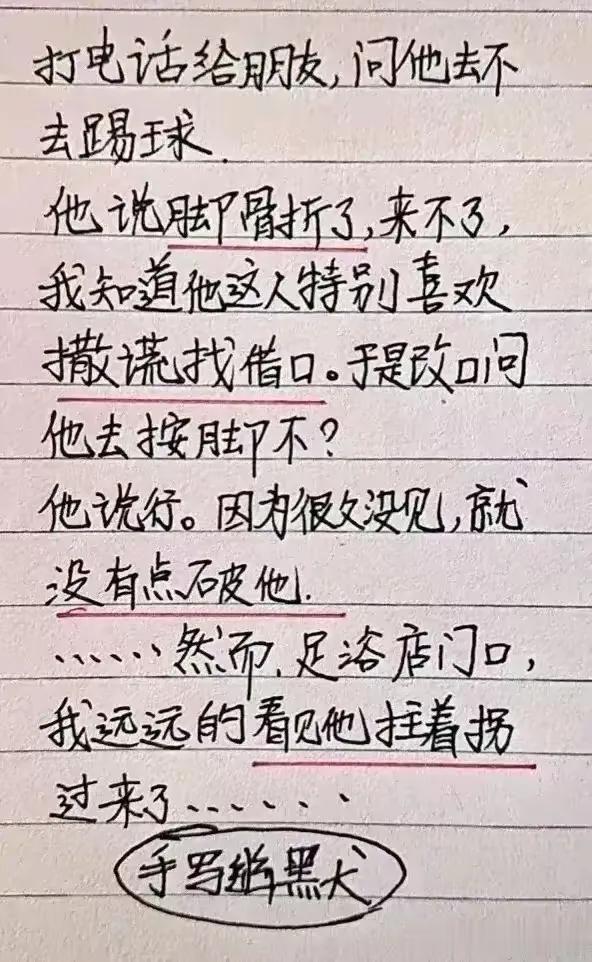 打电话给朋友,问他去不
去踢球.
他说脚骨折了,来不了,
我知道他这人特别喜欢
撒谎找借口。于是改口问
他去按脚不?
他说行。因为很久没见,就
没有点破他.
......然而,足浴店门口,
我远远的看见他拄着拐
过来了......
手写 黑犬